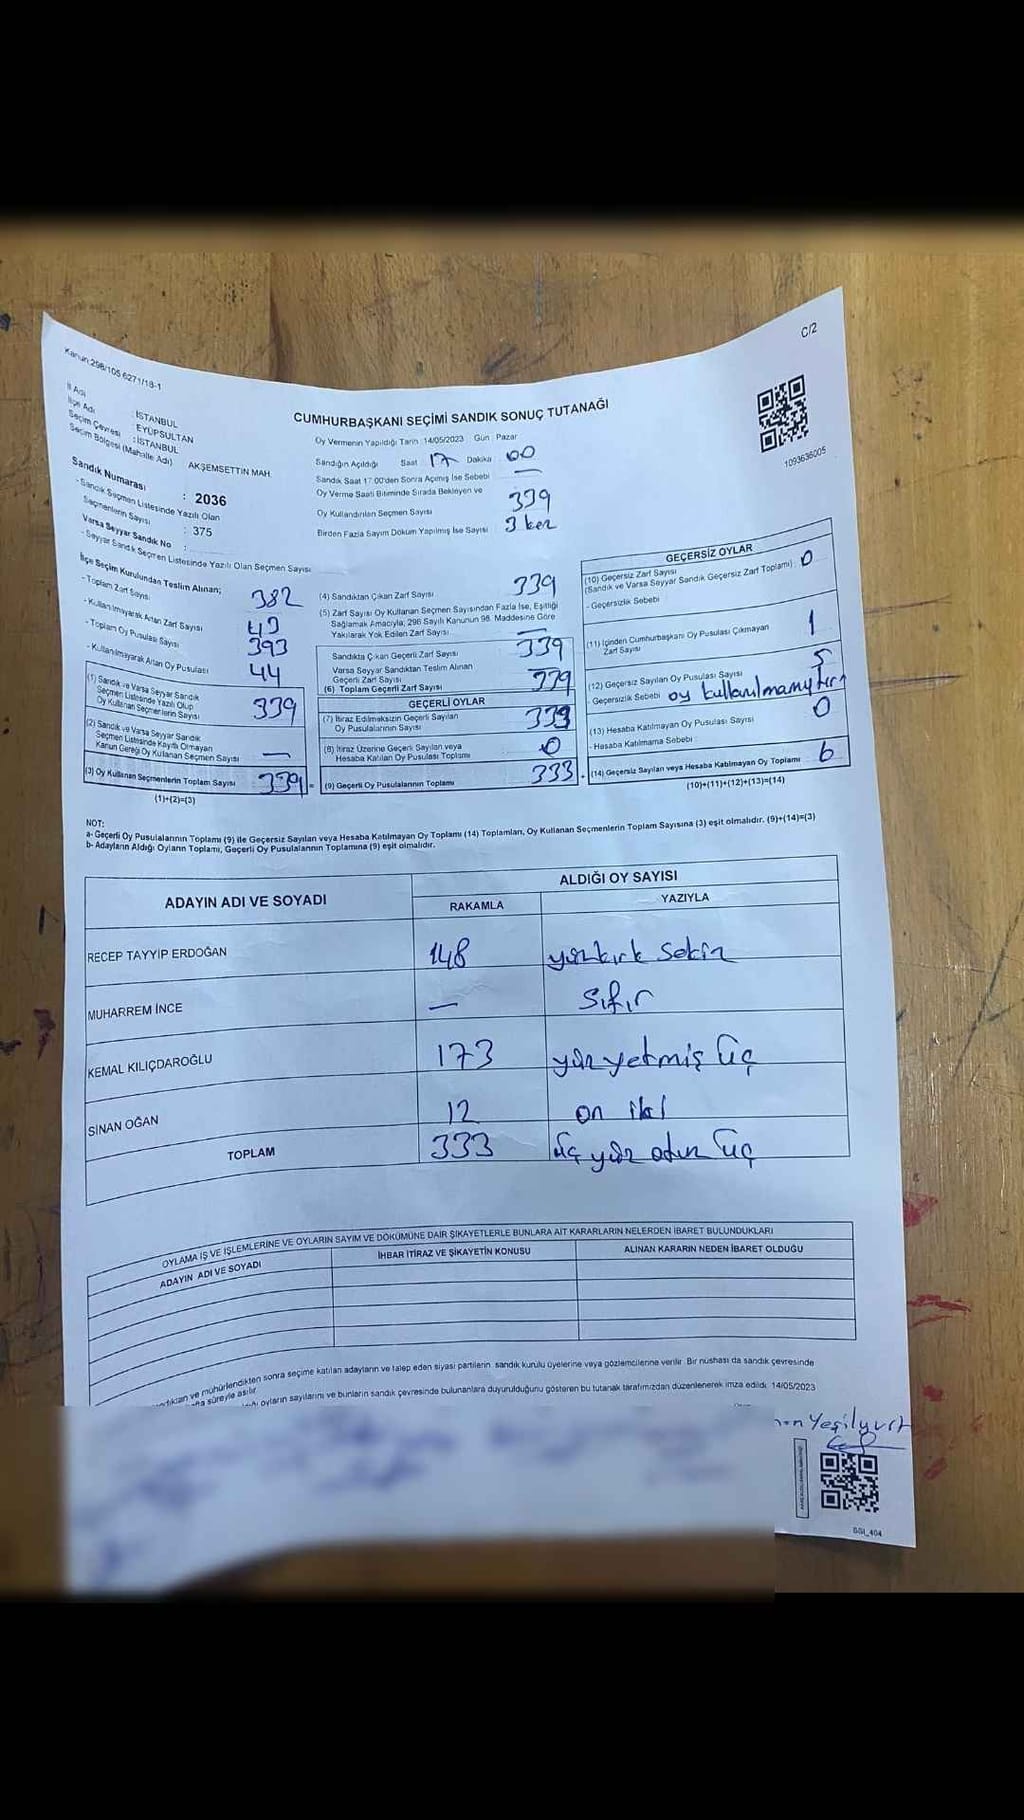 C/2
Kanun:298/105 6271/18-1
İl Adı : İSTANBUL
İlçe Adı : EYÜPSULTAN
Seçim Çevresi : İSTANBUL
Seçim Bölgesi (Mahalle Adı) AKŞEMSETTİN MAH.
Sandık Numarası : 2036
- Sandık Seçmen Listesinde Yazılı Olan
Seçmenlerin Sayısı : 375
Varsa Seyyar Sandık No :
- Seyyar Sandık Seçmen Listesinde Yazılı Olan Seçmen Sayısı
CUMHURBAŞKANI SEÇİMİ SANDIK SONUÇ TUTANAĞI
Oy Vermenin Yapıldığı Tarih : 14/05/2023 Gün : Pazar
Sandığın Açıldığı Saat 17 Dakika 00
Sandık Saat 17:00'den Sonra Açılmış İse Sebebi —
Oy Verme Saati Bitiminde Sırada Bekleyen ve
Oy Kullandırılan Seçmen Sayısı 339
Birden Fazla Sayım Döküm Yapılmış İse Sayısı 3 kez
1093636005
İlçe Seçim Kurulundan Teslim Alınan;
- Toplam Zarf Sayısı 382
- Kullanılmayarak Artan Zarf Sayısı 43
- Toplam Oy Pusulası Sayısı 393
- Kullanılmayarak Artan Oy Pusulası 44
(1) Sandık ve Varsa Seyyar Sandık
Seçmen Listesinde Yazılı Olup
Oy Kullanan Seçmenlerin Sayısı 339
(2) Sandık ve Varsa Seyyar Sandık
Seçmen Listesinde Kayıtlı Olmayan
Kanun Gereği Oy Kullanan Seçmen Sayısı —
(3) Oy Kullanan Seçmenlerin Toplam Sayısı 339 =
(1)+(2)=(3)
(4) Sandıktan Çıkan Zarf Sayısı 339
(5) Zarf Sayısı Oy Kullanan Seçmen Sayısından Fazla İse, Eşitliği
Sağlamak Amacıyla, 298 Sayılı Kanunun 98. Maddesine Göre
Yakılarak Yok Edilen Zarf Sayısı —
Sandıkta Çıkan Geçerli Zarf Sayısı 339
Varsa Seyyar Sandıktan Teslim Alınan
Geçerli Zarf Sayısı
(6) Toplam Geçerli Zarf Sayısı 339
GEÇERLİ OYLAR
(7) İtiraz Edilmeksizin Geçerli Sayılan
Oy Pusulalarının Sayısı 333
(8) İtiraz Üzerine Geçerli Sayılan veya
Hesaba Katılan Oy Pusulası Toplamı 0
(9) Geçerli Oy Pusulalarının Toplamı 333 +
GEÇERSİZ OYLAR
(10) Geçersiz Zarf Sayısı
(Sandık ve Varsa Seyyar Sandık Geçersiz Zarf Toplamı) : 0
- Geçersizlik Sebebi :
(11) İçinden Cumhurbaşkanı Oy Pusulası Çıkmayan
Zarf Sayısı 1
(12) Geçersiz Sayılan Oy Pusulası Sayısı 5
- Geçersizlik Sebebi oy kullanılmamıştır
(13) Hesaba Katılmayan Oy Pusulası Sayısı 0
- Hesaba Katılmama Sebebi :
(14) Geçersiz Sayılan veya Hesaba Katılmayan Oy Toplamı 6
(10)+(11)+(12)+(13)=(14)
NOT:
a- Geçerli Oy Pusulalarının Toplamı (9) ile Geçersiz Sayılan veya Hesaba Katılmayan Oy Toplamı (14) Toplamları, Oy Kullanan Seçmenlerin Toplam Sayısına (3) eşit olmalıdır. (9)+(14)=(3)
b- Adayların Aldığı Oyların Toplamı, Geçerli Oy Pusulalarının Toplamına (9) eşit olmalıdır.
ADAYIN ADI VE SOYADI
ALDIĞI OY SAYISI
RAKAMLA YAZIYLA
RECEP TAYYİP ERDOĞAN 148 yüzkırk sekiz
MUHARREM İNCE — sıfır
KEMAL KILIÇDAROĞLU 173 yüzyetmiş üç
SİNAN OĞAN 12 on iki
TOPLAM 333 üç yüz otuz üç
OYLAMA İŞ VE İŞLEMLERİNE VE OYLARIN SAYIM VE DÖKÜMÜNE DAİR ŞİKAYETLERLE BUNLARA AİT KARARLARIN NELERDEN İBARET BULUNDUKLARI
ADAYIN ADI VE SOYADI İHBAR İTİRAZ VE ŞİKAYETİN KONUSU ALINAN KARARIN NEDEN İBARET OLDUĞU
ve mühürlendikten sonra seçime katılan adayların ve talep eden siyasi partilerin sandık kurulu üyelerine veya gözlemcilerine verilir. Bir nüshası da sandık çevresinde
süreyle asılır.
oyların sayılarını ve bunların sandık çevresinde bulunanlara duyurulduğunu gösteren bu tutanak tarafımızdan düzenlenerek imza edildi. 14/05/2023
Yeşilyurt
SSI_404